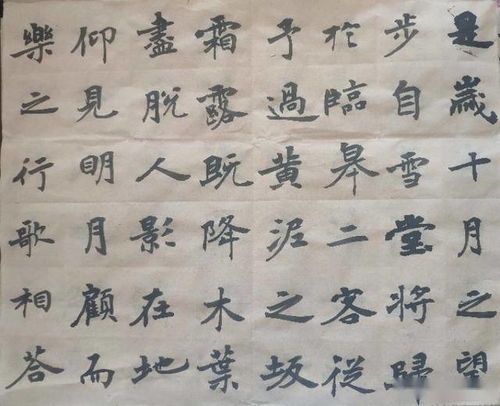 是歲十月之望
步自雪堂將歸
於臨皋二客從
予過黃泥之坂
霜露既降木葉
盡脫人影在地
仰見明月顧而
樂之行歌相答